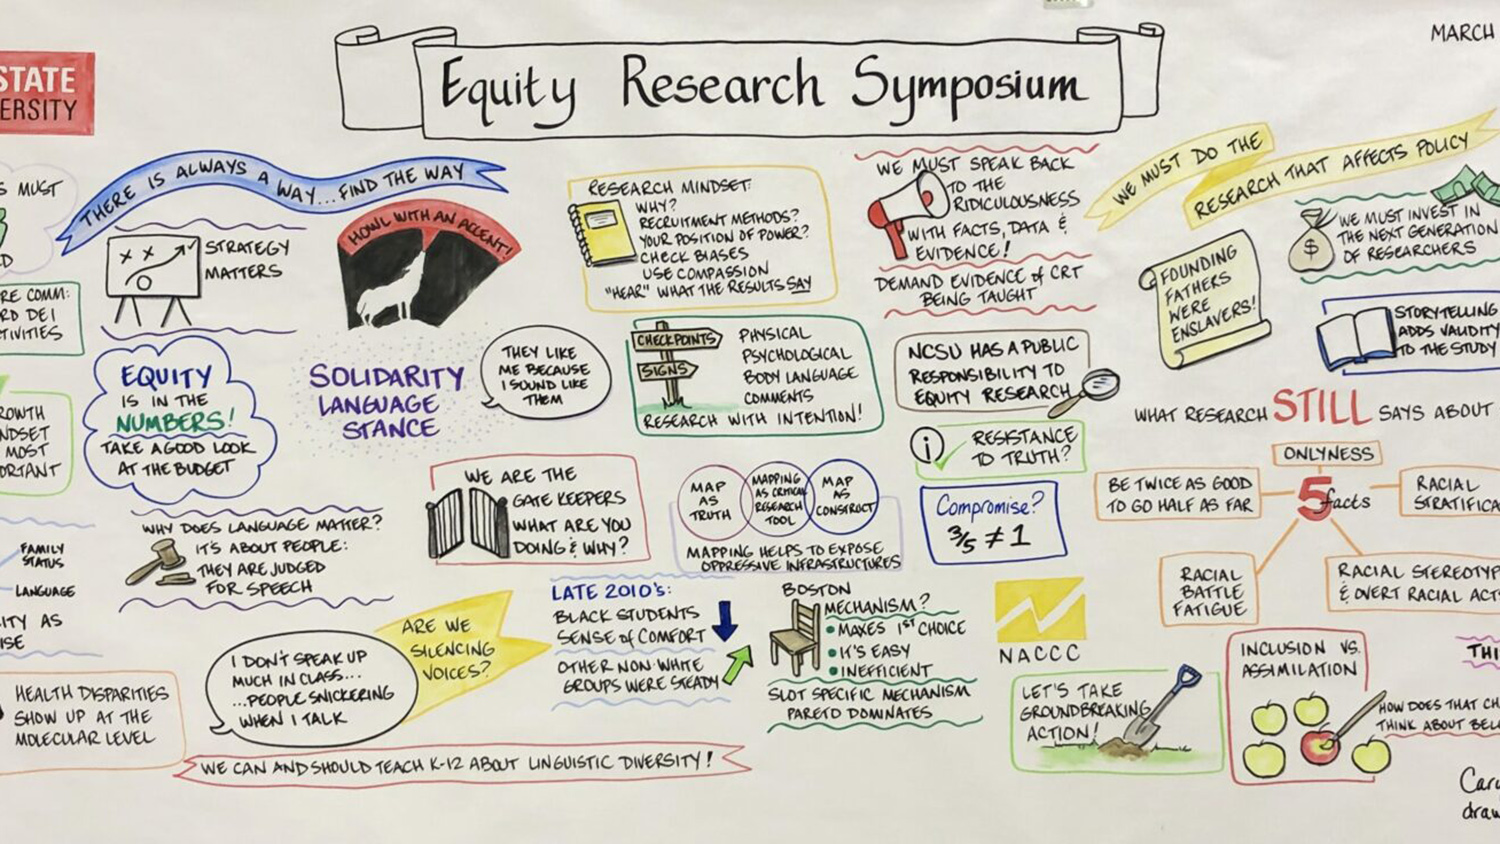 Equity Research Symposium
MARCH
STATE
ERSITY
S MUST
D
THERE IS ALWAYS A WAY...FIND THE WAY
STRATEGY
MATTERS
HOWL WITH AN ACCENT!
RESEARCH MINDSET:
WHY?
RECRUITMENT METHODS?
YOUR POSITION OF POWER?
CHECK BIASES
USE COMPASSION
"HEAR" WHAT THE RESULTS SAY
WE MUST SPEAK BACK
TO THE
RIDICULOUSNESS
WITH FACTS, DATA &
EVIDENCE!
DEMAND EVIDENCE of CRT
BEING TAUGHT
WE MUST DO THE
RESEARCH THAT AFFECTS POLICY
FOUNDING
FATHERS
WERE
ENSLAVERS!
$
WE MUST INVEST IN
THE NEXT GENERATION
OF RESEARCHERS
STORYTELLING
ADDS VALIDITY
TO THE STUDY
RE COMM:
RD DEI
TIVITIES
EQUITY
IS IN THE
NUMBERS!
TAKE A GOOD LOOK
AT THE BUDGET
SOLIDARITY
LANGUAGE
STANCE
THEY LIKE
ME BECAUSE
I SOUND LIKE
THEM
CHECKPOINTS
SIGNS
PHYSICAL
PSYCHOLOGICAL
BODY LANGUAGE
COMMENTS
RESEARCH WITH INTENTION!
NCSU HAS A PUBLIC
RESPONSIBILITY TO
EQUITY RESEARCH
i
RESISTANCE
TO TRUTH?
WHAT RESEARCH STILL SAYS ABOUT
ONLYNESS
5 facts
BE TWICE AS GOOD
TO GO HALF AS FAR
RACIAL
STRATIFICA
RACIAL
BATTLE
FATIGUE
RACIAL STEREOTYP
& OVERT RACIAL ACTS
ROWTH
NDSET
MOST
ORTANT
WHY DOES LANGUAGE MATTER?
IT'S ABOUT PEOPLE:
THEY ARE JUDGED
FOR SPEECH
WE ARE THE
GATE KEEPERS
WHAT ARE YOU
DOING & WHY?
MAP
AS
TRUTH
MAPPING
AS CRITICAL
RESEARCH
TOOL
MAP
AS
CONSTRUCT
MAPPING HELPS TO EXPOSE
OPPRESSIVE INFRASTRUCTURES
Compromise?
3/5 ≠ 1
FAMILY
STATUS
LANGUAGE
ITY AS
ISE
HEALTH DISPARITIES
SHOW UP AT THE
MOLECULAR LEVEL
I DON'T SPEAK UP
MUCH IN CLASS...
...PEOPLE SNICKERING
WHEN I TALK
ARE WE
SILENCING
VOICES?
LATE 2010's:
BLACK STUDENTS
SENSE of COMFORT
OTHER NON-WHITE
GROUPS WERE STEADY
BOSTON
MECHANISM?
• MAKES 1ST CHOICE
• IT'S EASY
• INEFFICIENT
SLOT SPECIFIC MECHANISM
PARETO DOMINATES
NACCC
LET'S TAKE
GROUNDBREAKING
ACTION!
INCLUSION VS.
ASSIMILATION
THI
HOW DOES THAT CH
THINK ABOUT BEL
WE CAN AND SHOULD TEACH K-12 ABOUT LINGUISTIC DIVERSITY!
draw